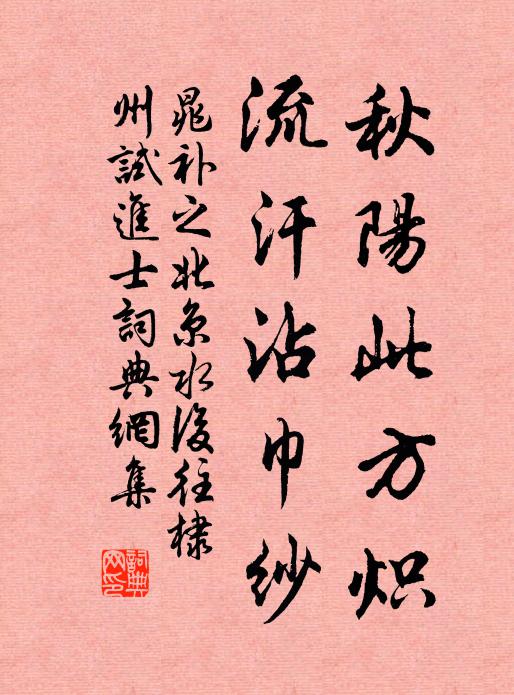 秋陽此方炽
流汗沾巾紗
晁补之北京水後往棣
州試進士詞典網集
詞典网印